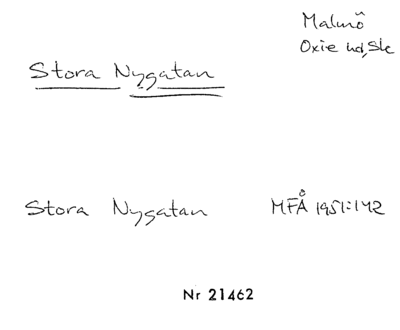 Malmö
Oxie hd, Sk
Stora Nygatan
Stora Nygatan MFÅ 1951:142
Nr 21462